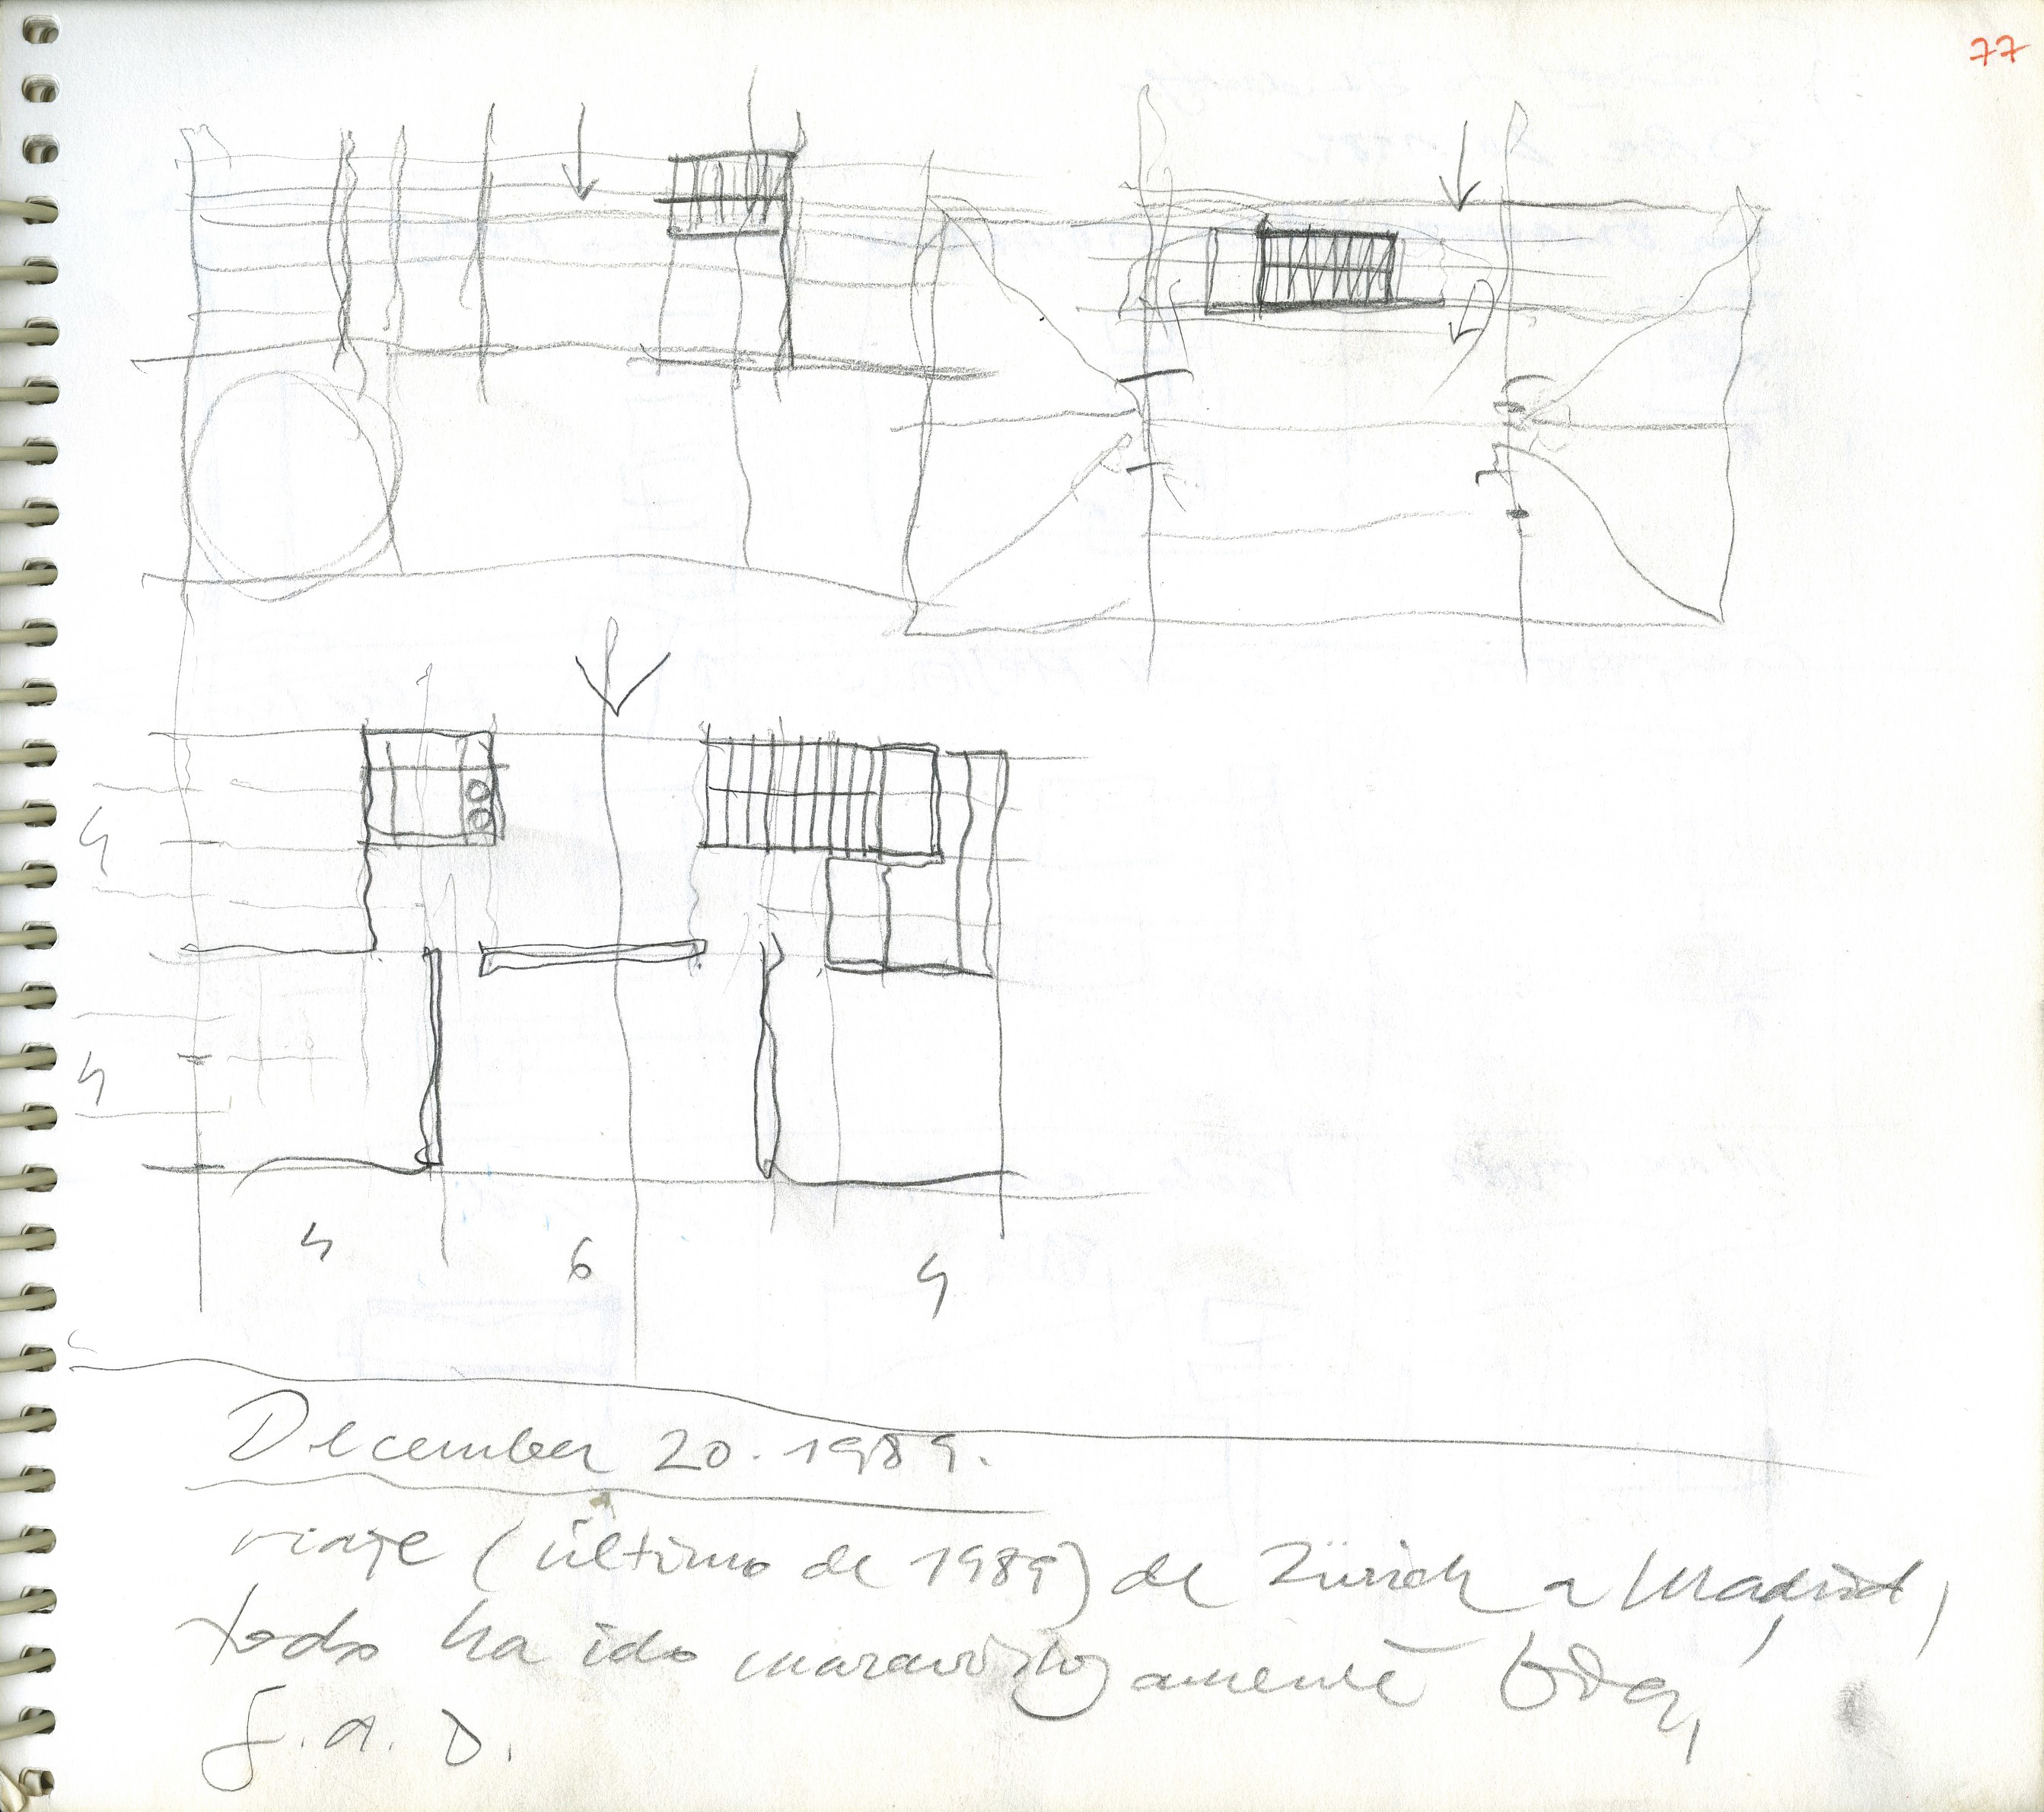 77
4
4
4 6 4
December 20. 1989.
viaje (último de 1989) de Zürich a Madrid,
todo ha ido maravillosamente bien,
g. a. D.